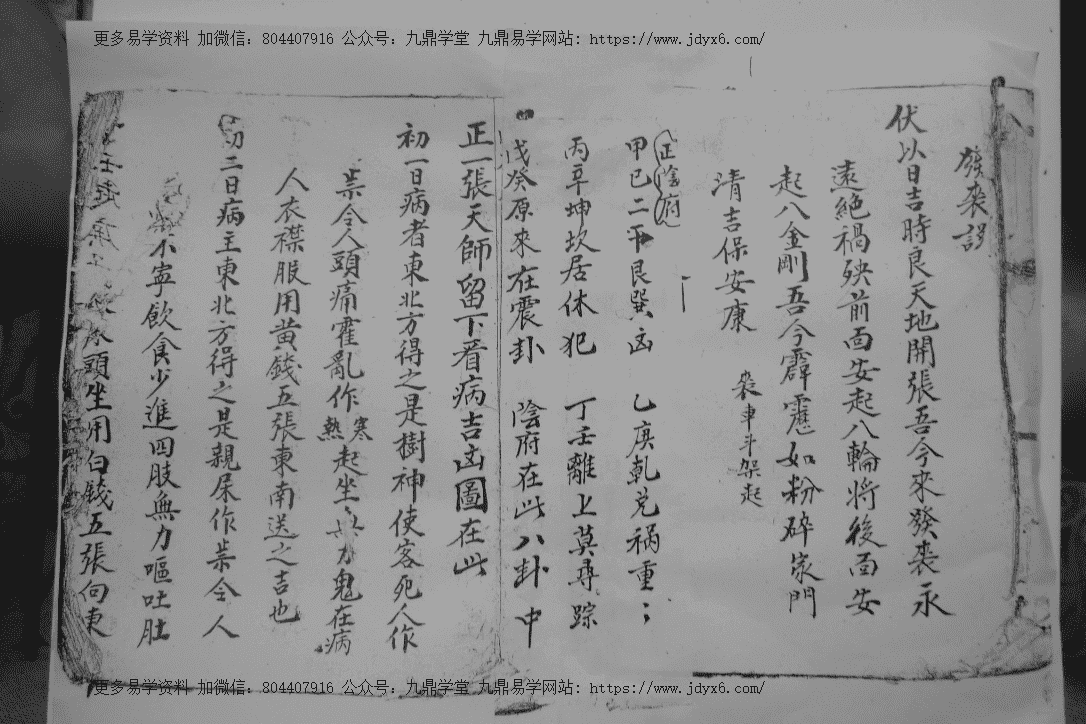 更多易学资料 加微信：804407916 公众号：九鼎学堂 九鼎易学网站：https://www.jdyx6.com/
發喪謬
伏以日吉時良天地開張吾今來發喪永
遠絕禍殃前面安起八輪將後面安
起八金剛吾今霹靂如粉碎家門
清吉保安康 喪車斗架起
正陰府
甲已二干艮巽凶 乙庚乾兌祸重；
丙辛坤坎居休犯 丁壬離上莫尋踪
戊癸原來在震卦 陰府在此八卦中
正一張天師留下看病吉凶圖在此
初一日病者東北方得之是樹神使客死人作
祟令人頭痛霍亂作寒熱起坐力鬼在病
人衣襟服用黄錢五張東南送之吉也
初二日病主東北方得之是親屎作祟令人
不寧飲食少進四肢無力嘔吐肚
頭坐用白錢五張向東
更多易学资料 加微信：804407916 公众号：九鼎学堂 九鼎易学网站：https://www.jdyx6.com/